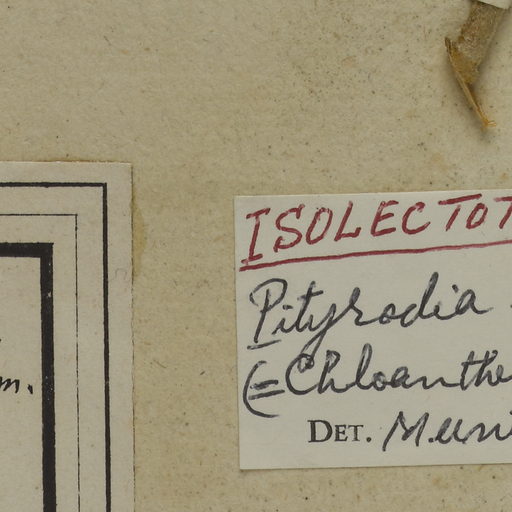 ISOLECTOT
Pityrodia
(=Chloanthe
DET. Muni
m.